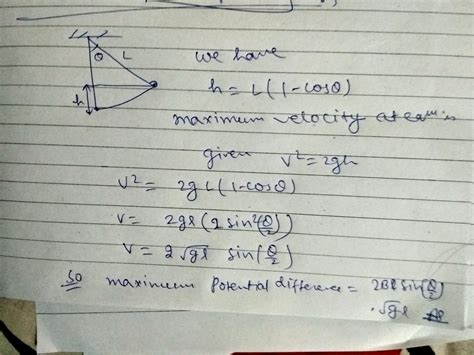 θ L
we have
h
h = L(1-cosθ)
maximum velocity at
given v² = 2gh
v² = 2gL(1-cosθ)
v = 2gl(2 sin²(θ/2))
v = 2√gl sin(θ/2)
So maximum Potential difference = 2Bl sin(θ/2)
.√gl